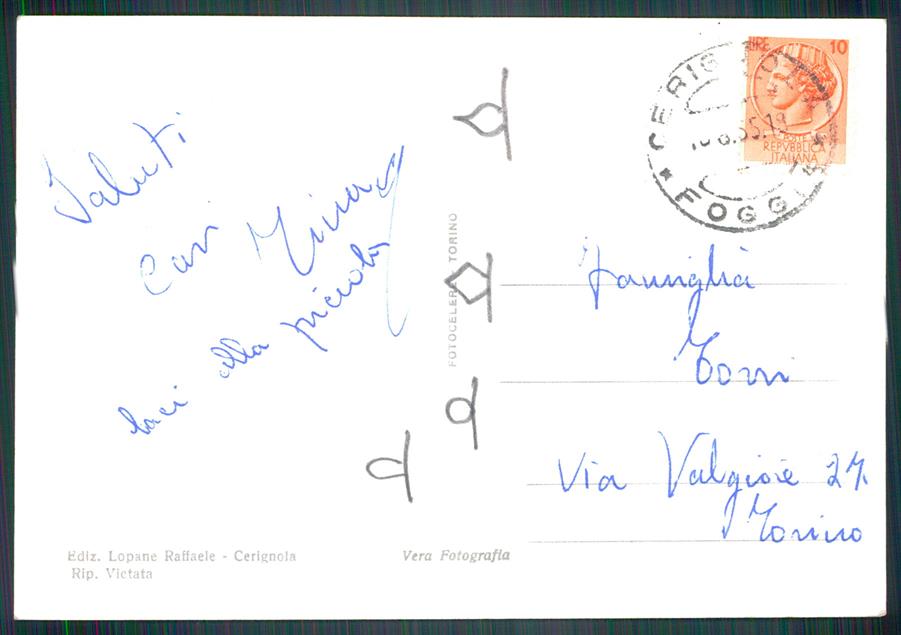 Saluti
Cari Mina
baci alla piccola
FOTOCELERE TORINO
Ediz. Lopane Raffaele - Cerignola
Rip. Vietata
Vera Fotografia
LIRE 10
POSTE
REPVBBLICA
ITALIANA
CERIGNOLA
FOGGIA
Famiglia
Torri
Via Valgioie 27
Torino